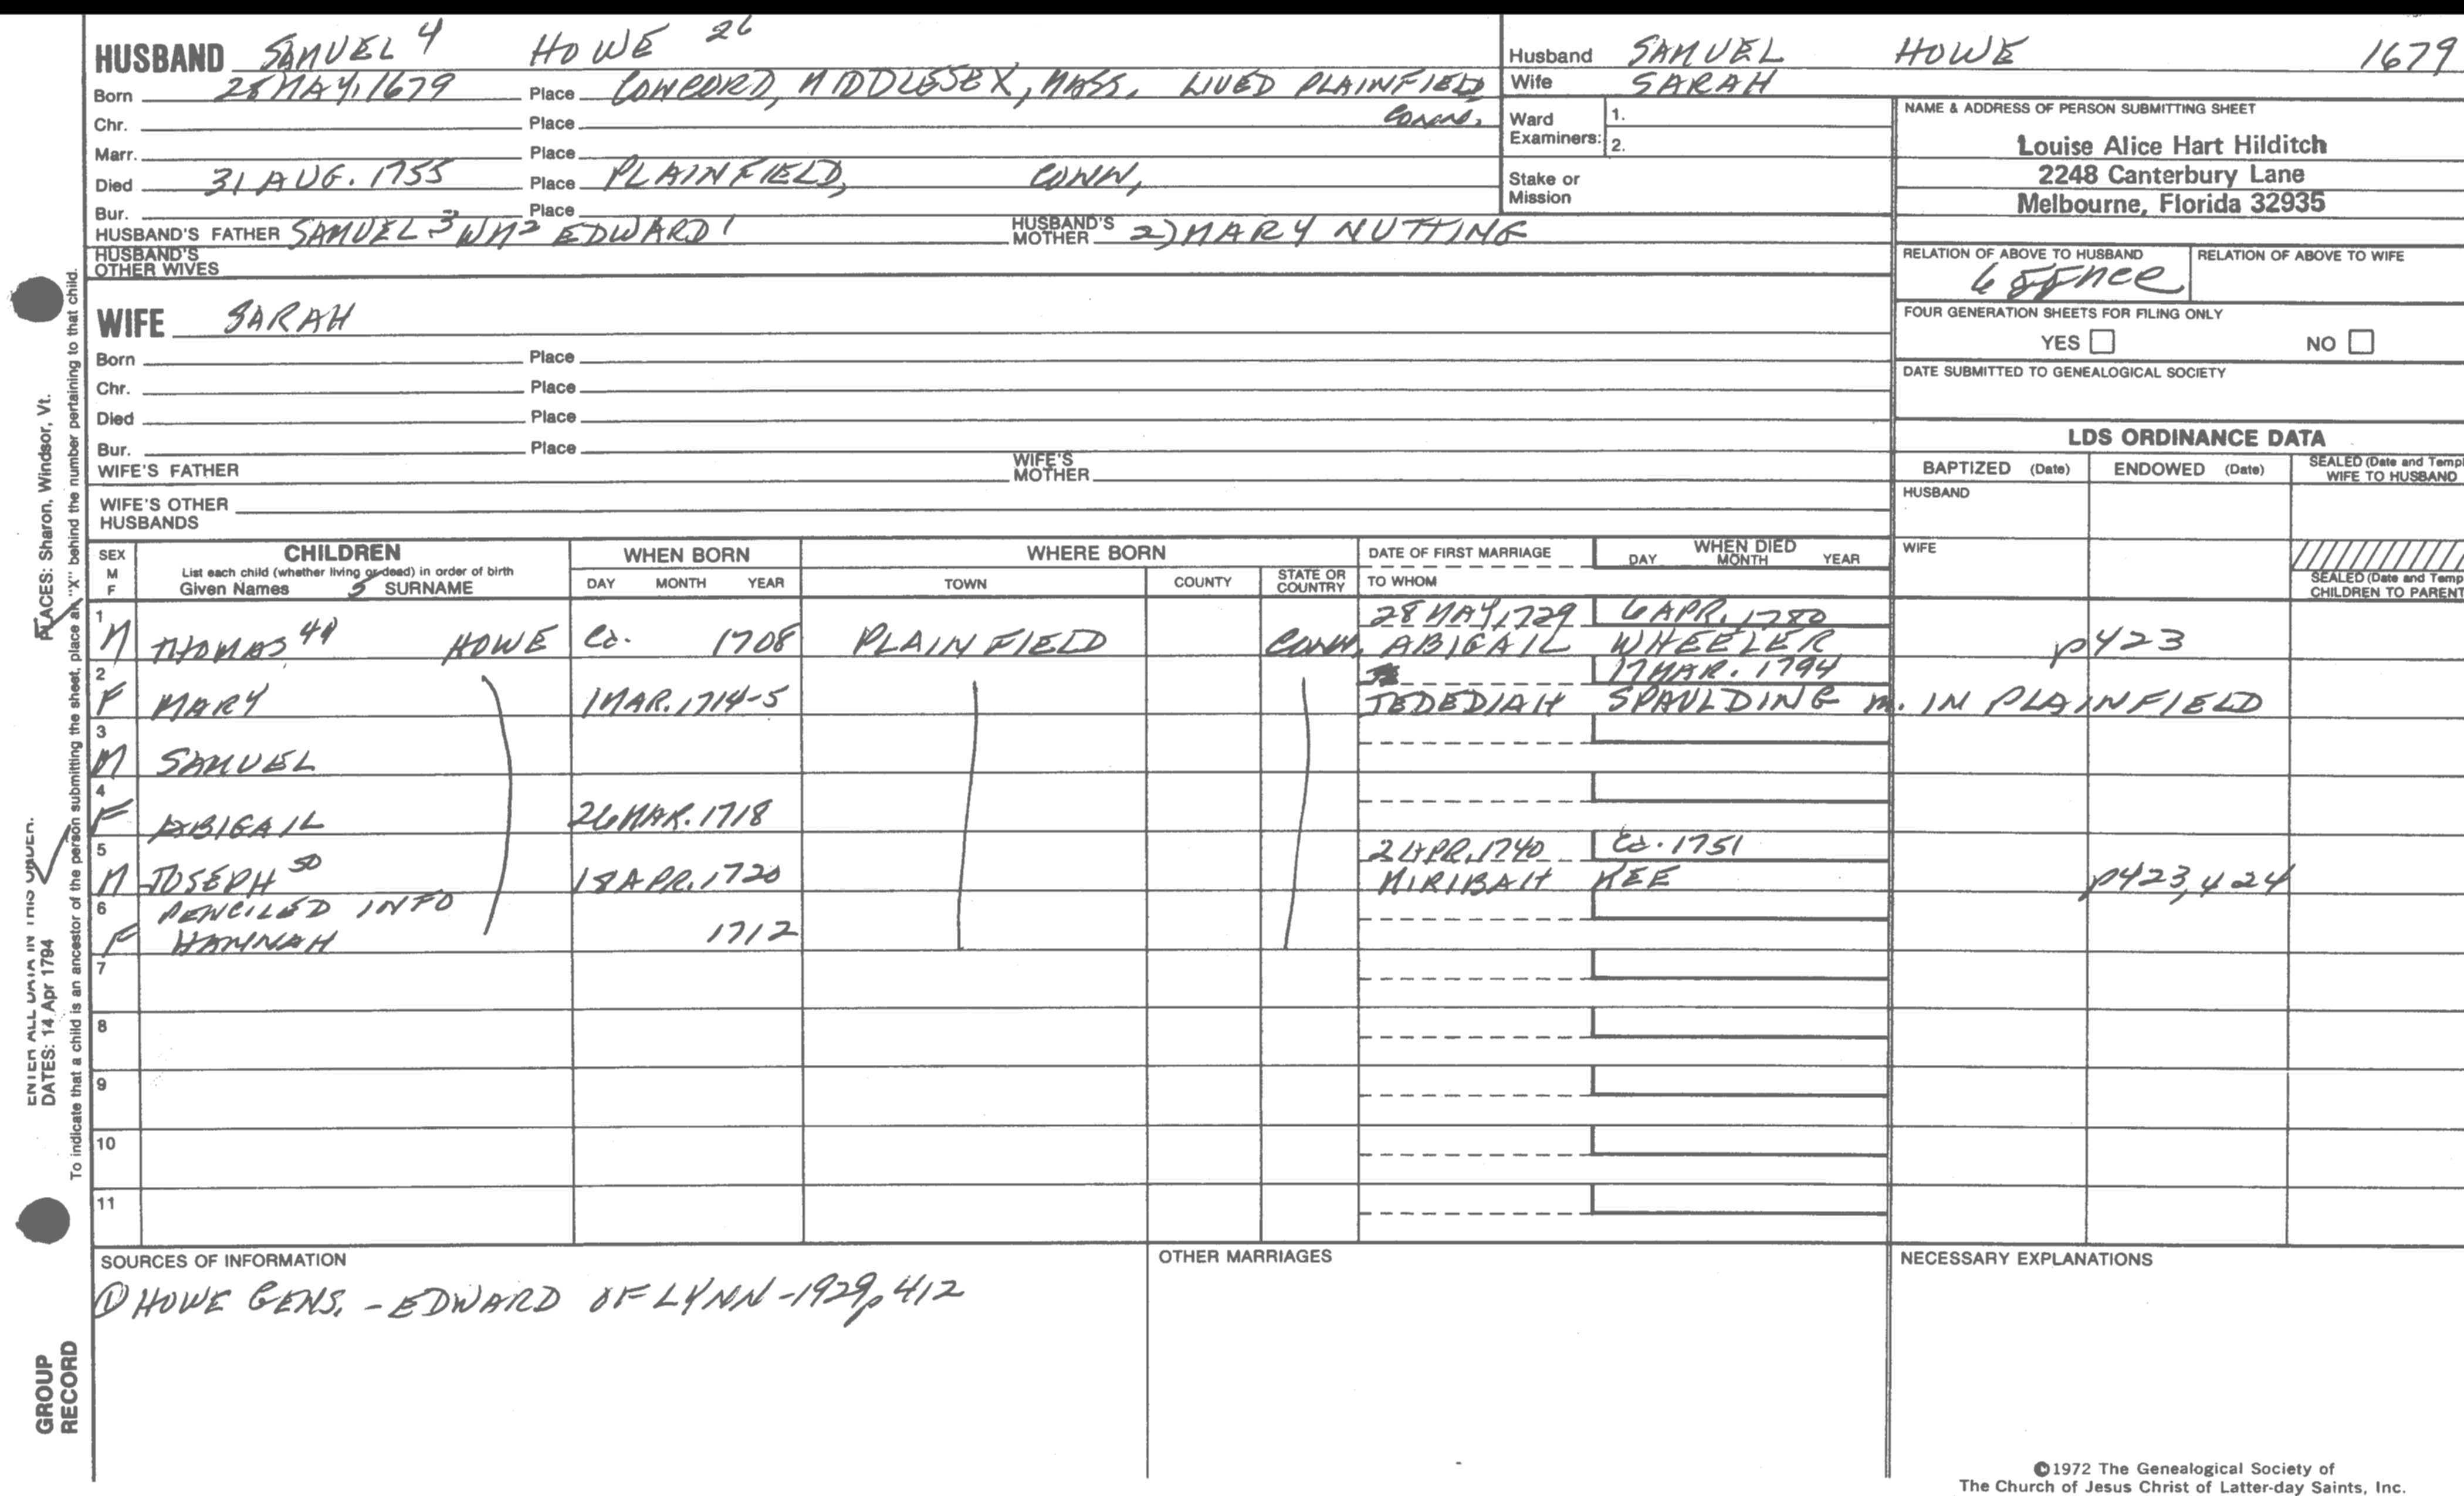 HUSBAND SAMUEL 4 HOWE 26
Born 28 MAY, 1679 Place CONCORD, MIDDLESEX, MASS. LIVED PLAINFIELD
Chr. Place CONN.
Marr. Place
Died 31 AUG. 1755 Place PLAINFIELD, CONN,
Bur. Place
HUSBAND'S FATHER SAMUEL 3 WM 2 EDWARD 1 HUSBAND'S MOTHER 2) MARY NUTTING
HUSBAND'S OTHER WIVES
WIFE SARAH
Born Place
Chr. Place
Died Place
Bur. Place
WIFE'S FATHER WIFE'S MOTHER
WIFE'S OTHER HUSBANDS
Husband SAMUEL HOWE 1679
Wife SARAH
Ward Examiners: 1.
2.
Stake or Mission
NAME & ADDRESS OF PERSON SUBMITTING SHEET
Louise Alice Hart Hilditch
2248 Canterbury Lane
Melbourne, Florida 32935
RELATION OF ABOVE TO HUSBAND RELATION OF ABOVE TO WIFE
FOUR GENERATION SHEETS FOR FILING ONLY
YES NO
DATE SUBMITTED TO GENEALOGICAL SOCIETY
LDS ORDINANCE DATA
BAPTIZED (Date) ENDOWED (Date) SEALED (Date and Templ
WIFE TO HUSBAND
HUSBAND
WIFE
SEALED (Date and Temp
CHILDREN TO PARENT
SEX M F CHILDREN WHEN BORN WHERE BORN DATE OF FIRST MARRIAGE WHEN DIED
List each child (whether living or dead) in order of birth
Given Names 5 SURNAME DAY MONTH YEAR TOWN COUNTY STATE OR COUNTRY TO WHOM DAY MONTH YEAR
1 28 MAY, 1729 6 APR. 1780
M THOMAS 49 HOWE Ca. 1708 PLAINFIELD CONN. ABIGAIL WHEELER p423
2 17 MAR. 1794
F MARY 1 MAR. 1714-5 JEDEDIAH SPAULDING m. IN PLAINFIELD
3
M SAMUEL
4
F ABIGAIL 26 MAR. 1718
5 2 APR. 1740 Ca. 1751
M JOSEPH 50 18 APR. 1720 MIRIBAH KEE p423, 424
6 PENCILED INFO
F HANNAH 1712
7
8
9
10
11
SOURCES OF INFORMATION
① HOWE GENS. - EDWARD OF LYNN - 1929 p 412
OTHER MARRIAGES
NECESSARY EXPLANATIONS
©1972 The Genealogical Society of
The Church of Jesus Christ of Latter-day Saints, Inc.
ENTER ALL DATA IN THIS ORDER.
PLACES: Sharon, Windsor, Vt.
DATES: 14 Apr 1794
To indicate that a child is an ancestor of the person submitting the sheet, place an "X" behind the number pertaining to that child.
GROUP
RECORD